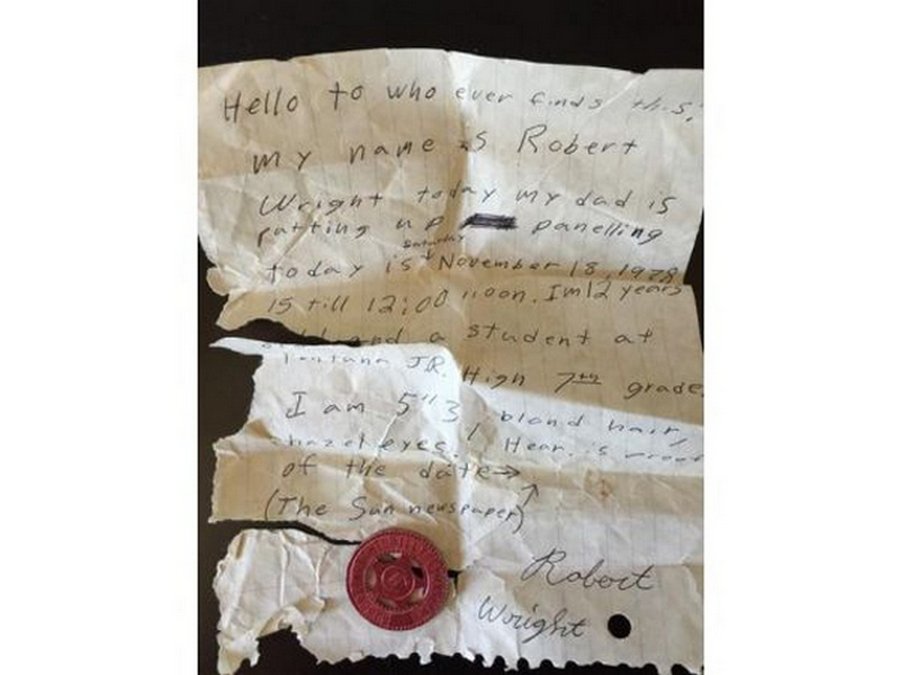 Hello to who ever finds this,
my name is Robert
Wright today my dad is
putting up panelling
Saturday
today is November 18, 1978
15 till 12:00 noon. Im 12 years
old and a student at
Fontana JR. High 7th grade.
I am 5"3 blond hair,
hazel eyes. Hear is proof
of the date→
(The Sun newspaper)
Robert
Wright